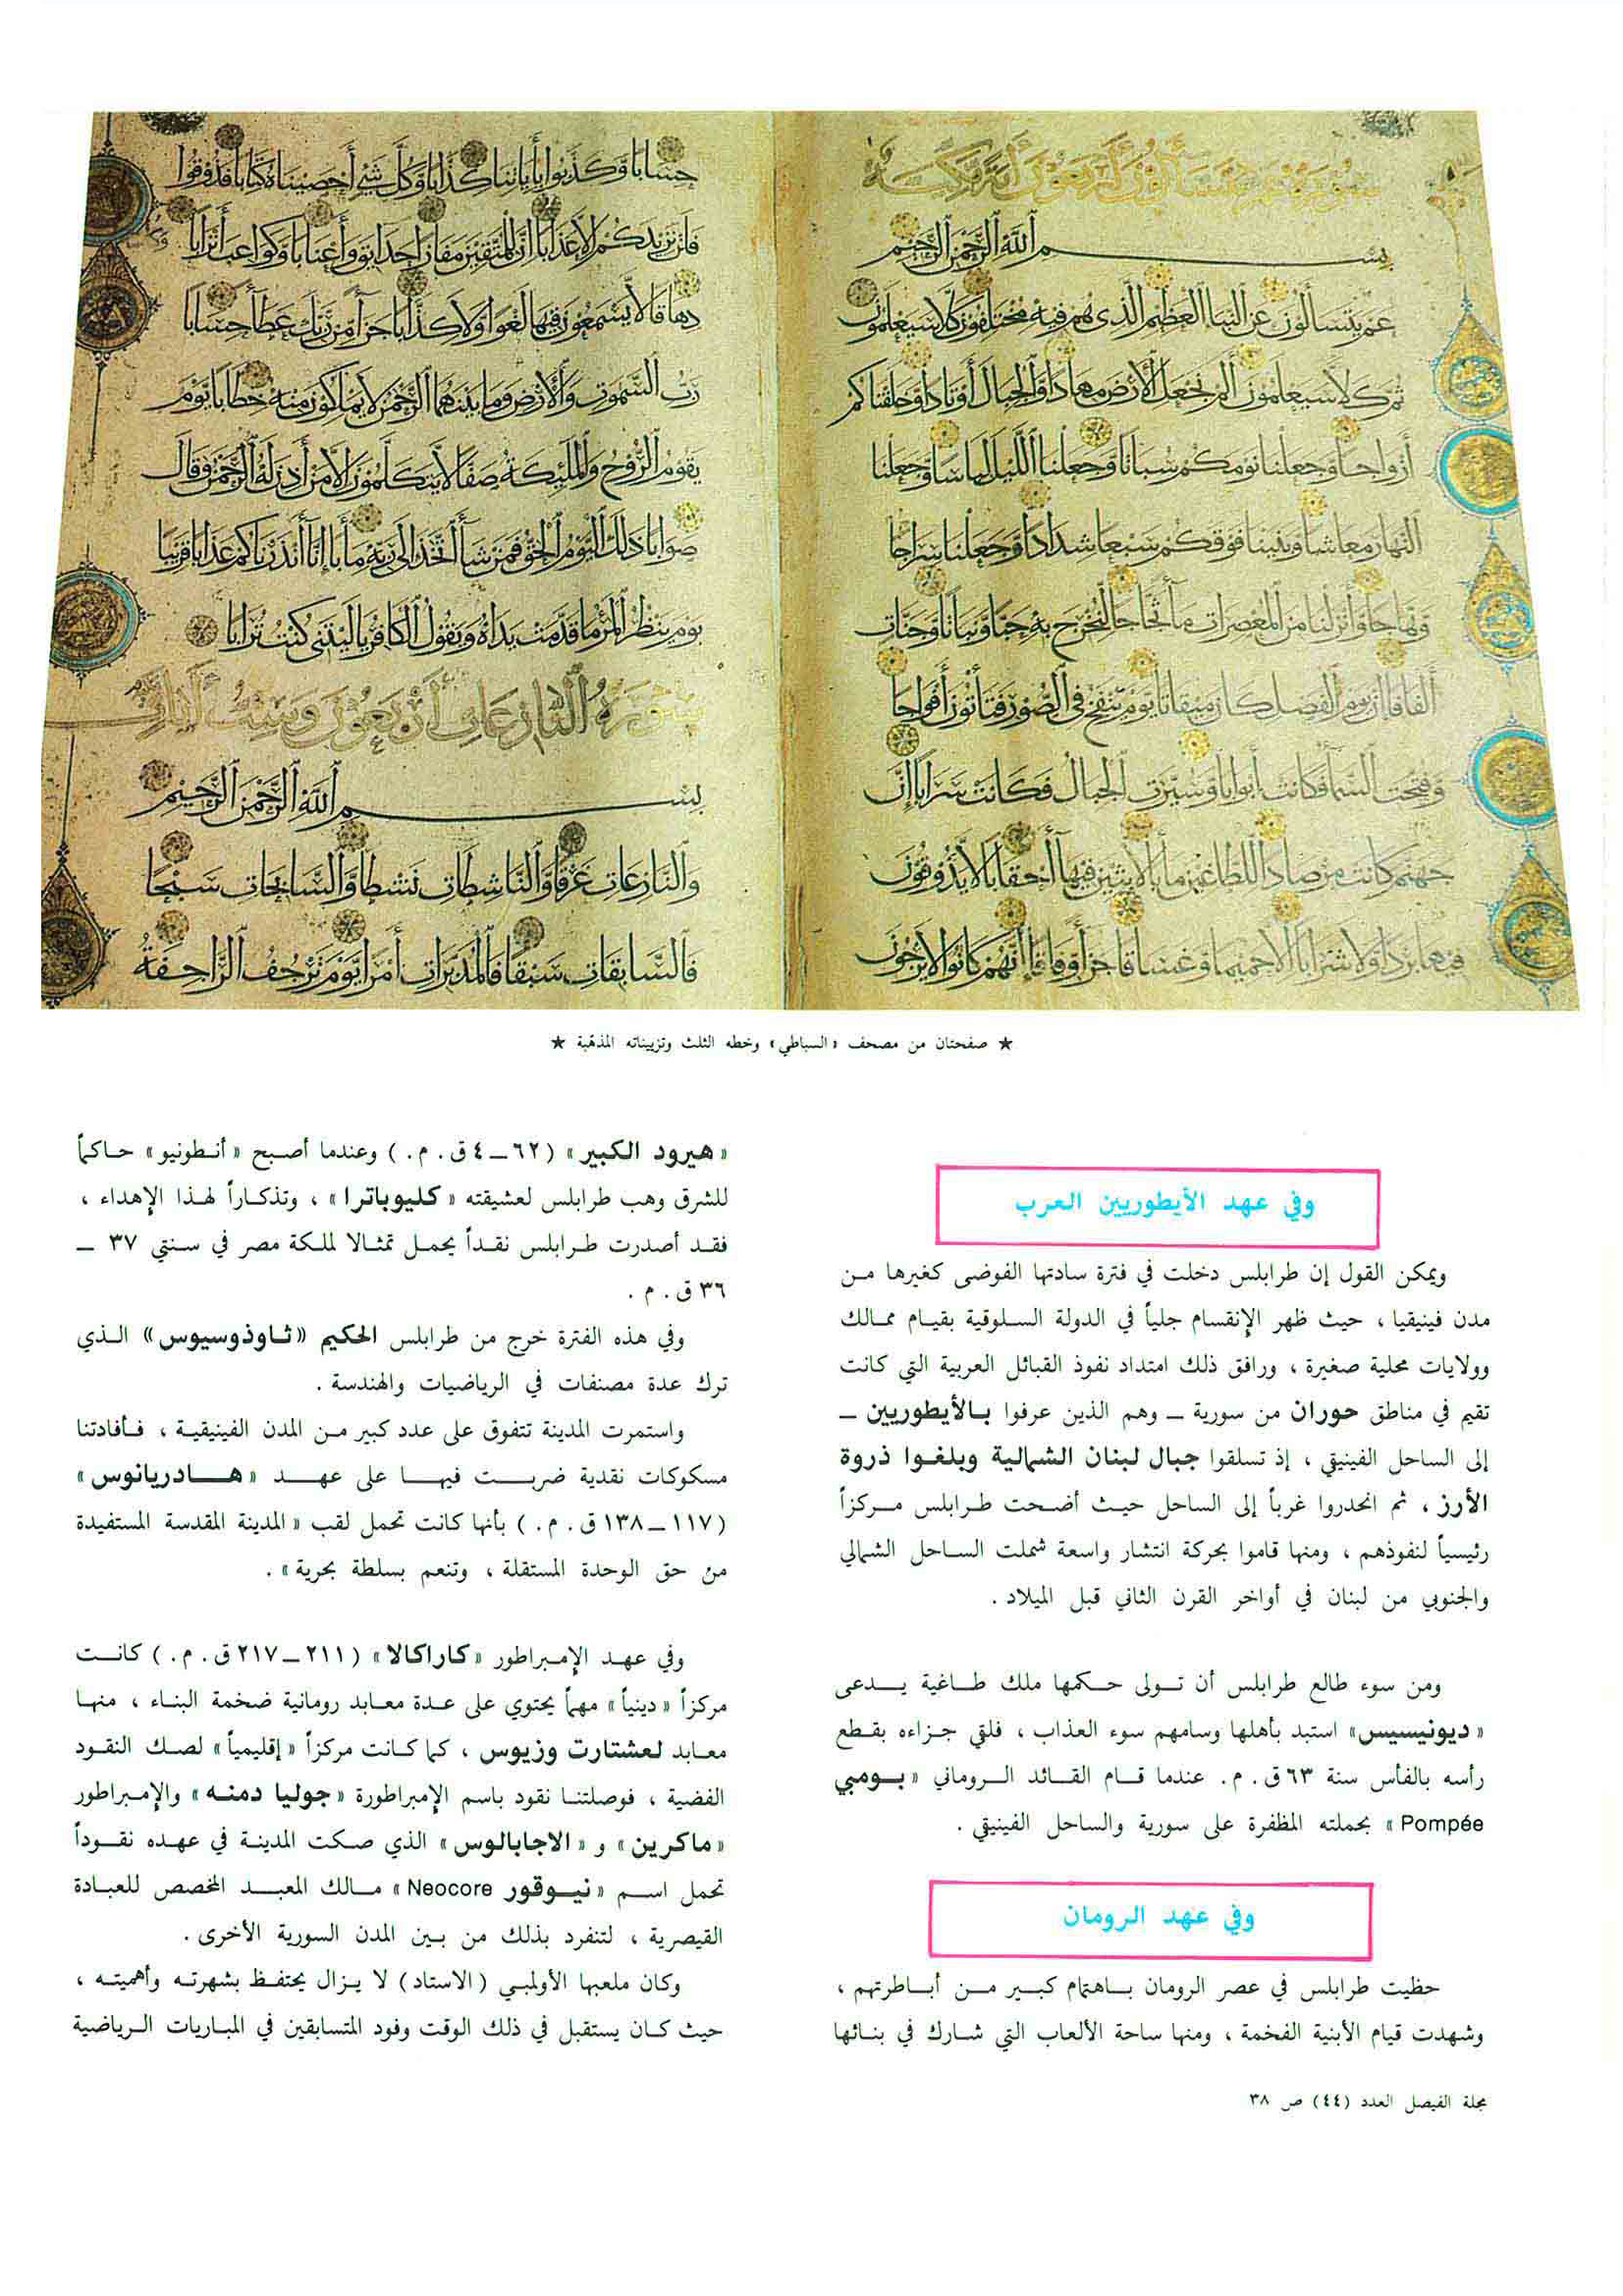 سورة عم يتسألون أربعون آية مكية
بسم الله الرحمن الرحيم
عم يتسألون عن النبإ العظيم الذي هم فيه مختلفون كلا سيعلمون
ثم كلا سيعلمون ألم نجعل الأرض مهادا والجبال أوتادا وخلقناكم
أزواجا وجعلنا نومكم سباتا وجعلنا الليل لباسا وجعلنا
النهار معاشا وبنينا فوقكم سبعا شدادا وجعلنا سراجا
وهاجا وأنزلنا من المعصرات ماء ثجاجا لنخرج به حبا ونباتا وجنات
ألفافا إن يوم الفصل كان ميقاتا يوم ينفخ في الصور فتأتون أفواجا
وفتحت السماء فكانت أبوابا وسيرت الجبال فكانت سرابا إن
جهنم كانت مرصادا للطاغين مآبا لابثين فيها أحقابا لا يذوقون
فيها بردا ولا شرابا إلا حميما وغساقا جزاء وفاقا إنهم كانوا لا يرجون
حسابا وكذبوا بأياتنا كذابا وكل شيء أحصيناه كتابا فذوقوا
فلن نزيدكم إلا عذابا إن للمتقين مفازا حدايق وأعنابا وكواعب أترابا
دهاقا لا يسمعون فيها لغوا ولا كذابا جزاء من ربك عطاء حسابا
رب السموات والأرض وما بينهما الرحمن لا يملكون منه خطابا يوم
يقوم الروح والمليكة صفا لا يتكلمون إلا من أذن له الرحمن وقال
صوابا ذلك اليوم الحق فمن شاء اتخذ إلى ربه مآبا إنا أنذرناكم عذابا قريبا
يوم ينظر المرء ما قدمت يداه ويقول الكافر يا ليتني كنت ترابا
سورة النازعات أربعون وست آيات
بسم الله الرحمن الرحيم
والنازعات غرقا والناشطات نشطا والسابحات سبحا
فالسابقات سبقا فالمدبرات أمرا يوم ترجف الراجفة
★ صفحتان من مصحف «السباطي» وخطه الثلث وتزييناته المذهبة ★
وفي عهد الأيطوريين العرب
ويمكن القول إن طرابلس دخلت في فترة سادتها الفوضى كغيرها من
مدن فينيقيا ، حيث ظهر الإنقسام جلياً في الدولة السلوقية بقيام ممالك
وولايات محلية صغيرة ، ورافق ذلك امتداد نفوذ القبائل العربية التي كانت
تقيم في مناطق حوران من سورية ـ وهم الذين عرفوا بالأيطوريين ـ
إلى الساحل الفينيقي ، إذ تسلقوا جبال لبنان الشمالية وبلغوا ذروة
الأرز ، ثم انحدروا غرباً إلى الساحل حيث أضحت طرابلس مركزاً
رئيسياً لنفوذهم ، ومنها قاموا بحركة انتشار واسعة شملت الساحل الشمالي
والجنوبي من لبنان في أواخر القرن الثاني قبل الميلاد .
ومن سوء طالع طرابلس أن تولى حكمها ملك طاغية يدعى
«ديونيسيس» استبد بأهلها وسامهم سوء العذاب ، فلقي جزاءه بقطع
رأسه بالفأس سنة ٦٣ ق . م . عندما قام القائد الروماني «بومبي
Pompée» بحملته المظفرة على سورية والساحل الفينيقي .
وفي عهد الرومان
حظيت طرابلس في عصر الرومان باهتمام كبير من أباطرتهم ،
وشهدت قيام الأبنية الفخمة ، ومنها ساحة الألعاب التي شارك في بنائها
«هيرود الكبير» (٦٢ ـ ٤ ق . م . ) وعندما أصبح «أنطونيو» حاكماً
للشرق وهب طرابلس لعشيقته «كليوباترا» ، وتذكاراً لهذا الإهداء ،
فقد أصدرت طرابلس نقداً يحمل تمثالا لملكة مصر في سنتي ٣٧ ـ
٣٦ ق . م .
وفي هذه الفترة خرج من طرابلس الحكيم «ثاوذوسيوس» الذي
ترك عدة مصنفات في الرياضيات والهندسة .
واستمرت المدينة تتفوق على عدد كبير من المدن الفينيقية ، فأفادتنا
مسكوكات نقدية ضربت فيها على عهد «هادريانوس»
(١١٧ ـ ١٣٨ ق . م . ) بأنها كانت تحمل لقب «المدينة المقدسة المستفيدة
من حق الوحدة المستقلة ، وتنعم بسلطة بحرية» .
وفي عهد الإمبراطور «كاراكالا» (٢١١ ـ ٢١٧ ق . م . ) كانت
مركزاً «دينياً» مهماً يحتوي على عدة معابد رومانية ضخمة البناء ، منها
معابد لعشتارت وزيوس ، كما كانت مركزاً «إقليمياً» لصك النقود
الفضية ، فوصلتنا نقود باسم الإمبراطورة «جوليا دمنه» والإمبراطور
«ماكرين» و «الاجابالوس» الذي صكت المدينة في عهده نقوداً
تحمل اسم «نيوقور Neocore» مالك المعبد المخصص للعبادة
القيصرية ، لتنفرد بذلك من بين المدن السورية الأخرى .
وكان ملعبها الأولمبي (الاستاد) لا يزال يحتفظ بشهرته وأهميته ،
حيث كان يستقبل في ذلك الوقت وفود المتسابقين في المباريات الرياضية
مجلة الفيصل العدد (٤٤) ص ٣٨